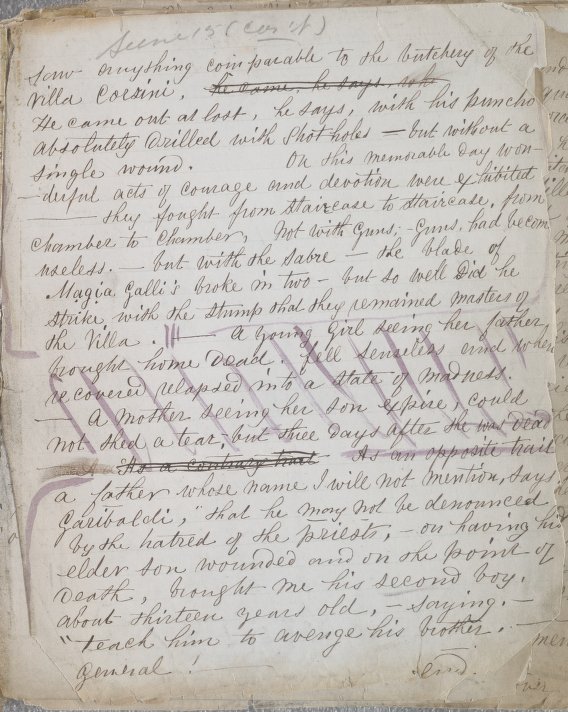 June 15 (con't)
saw anything comparable to the butchery of the
Villa Corsini. He came, he says, with
He came out at last, he says, with his puncho
absolutely drilled with shot holes — but without a
single wound. On this memorable day won-
-derful acts of courage and devotion were exhibited
— they fought from staircase to staircase, from
chamber to chamber, not with guns, - guns, had becom
useless. — but with the sabre — the blade of
Magia Galli's broke in two — but so well did he
strike with the stump that they remained masters of
the Villa." — A young girl seeing her father
brought home dead. fell senseless and when
recovered relapsed into a state of madness.
— A mother seeing her son expire, could
not shed a tear, but three days after she was dead
— As a contrary trait As an opposite trait
a father whose name I will not mention, says
Garibaldi, "that he may not be denounced
by the hatred of the priests, — on having his
elder son wounded and on the point of
death, brought me his second boy.
about thirteen years old, — saying. —
"teach him to avenge his brother. —
General! — end.
over